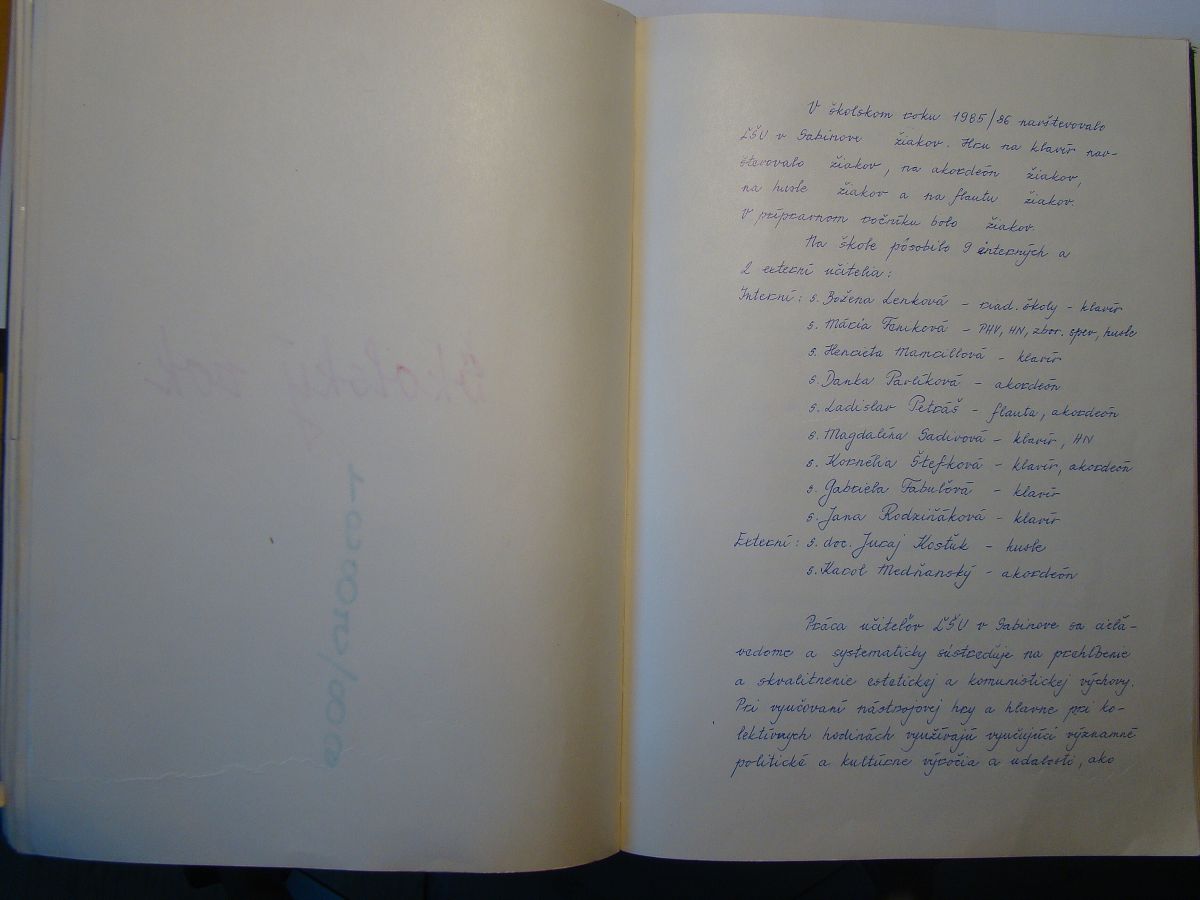 V školskom roku 1985/86 navštevovalo
ĽŠU v Sabinove žiakov. Hru na klavír nav-
števovalo žiakov, na akordeón žiakov,
na husle žiakov a na flautu žiakov.
V prípravnom ročníku bolo žiakov.
Na škole pôsobilo 9 interných a
2 externí učitelia:
Interní: s. Božena Lenková - riad. školy - klavír
s. Mária Feníková - PHV, HN, zbor. spev, husle
s. Henrieta Mancillová - klavír
s. Danka Pavlíková - akordeón
s. Ladislav Petráš - flauta, akordeón
s. Magdaléna Sadivová - klavír, HN
s. Kornélia Štefková - klavír, akordeón
s. Gabriela Fabuľová - klavír
s. Jana Rodziňáková - klavír
Externí: s. doc. Juraj Kosťuk - husle
s. Karol Medňanský - akordeón
Práca učiteľov ĽŠU v Sabinove sa cieľa-
vedome a systematicky sústreďuje na prehĺbenie
a skvalitnenie estetickej a komunistickej výchovy.
Pri vyučovaní nástrojovej hry a hlavne pri ko-
lektívnych hodinách využívajú vyučujúci významné
politické a kultúrne výročia a udalosti, ako